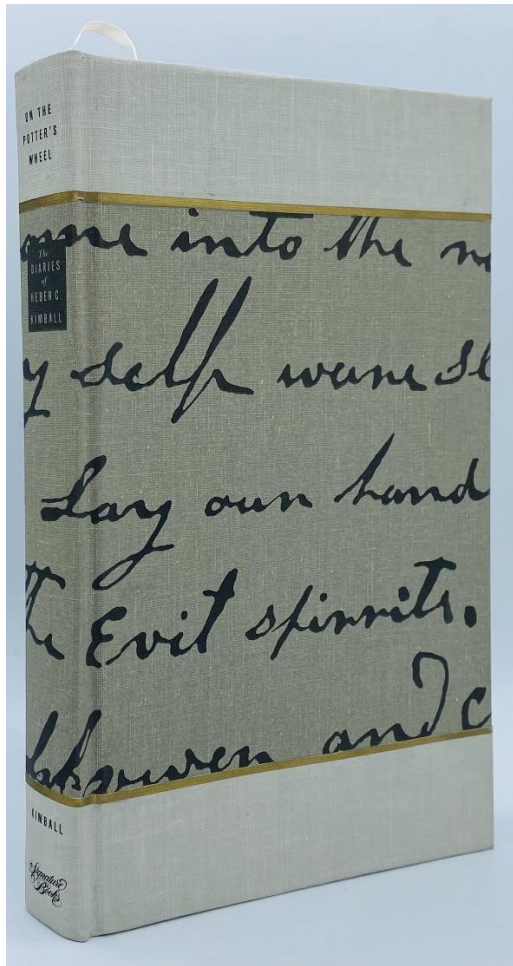 ON THE
POTTER'S
WHEEL
The
DIARIES
of
HEBER C.
KIMBALL
KIMBALL
Signature
Books
into the
y self
Lay oun hand
the Evil spirrits.
and c